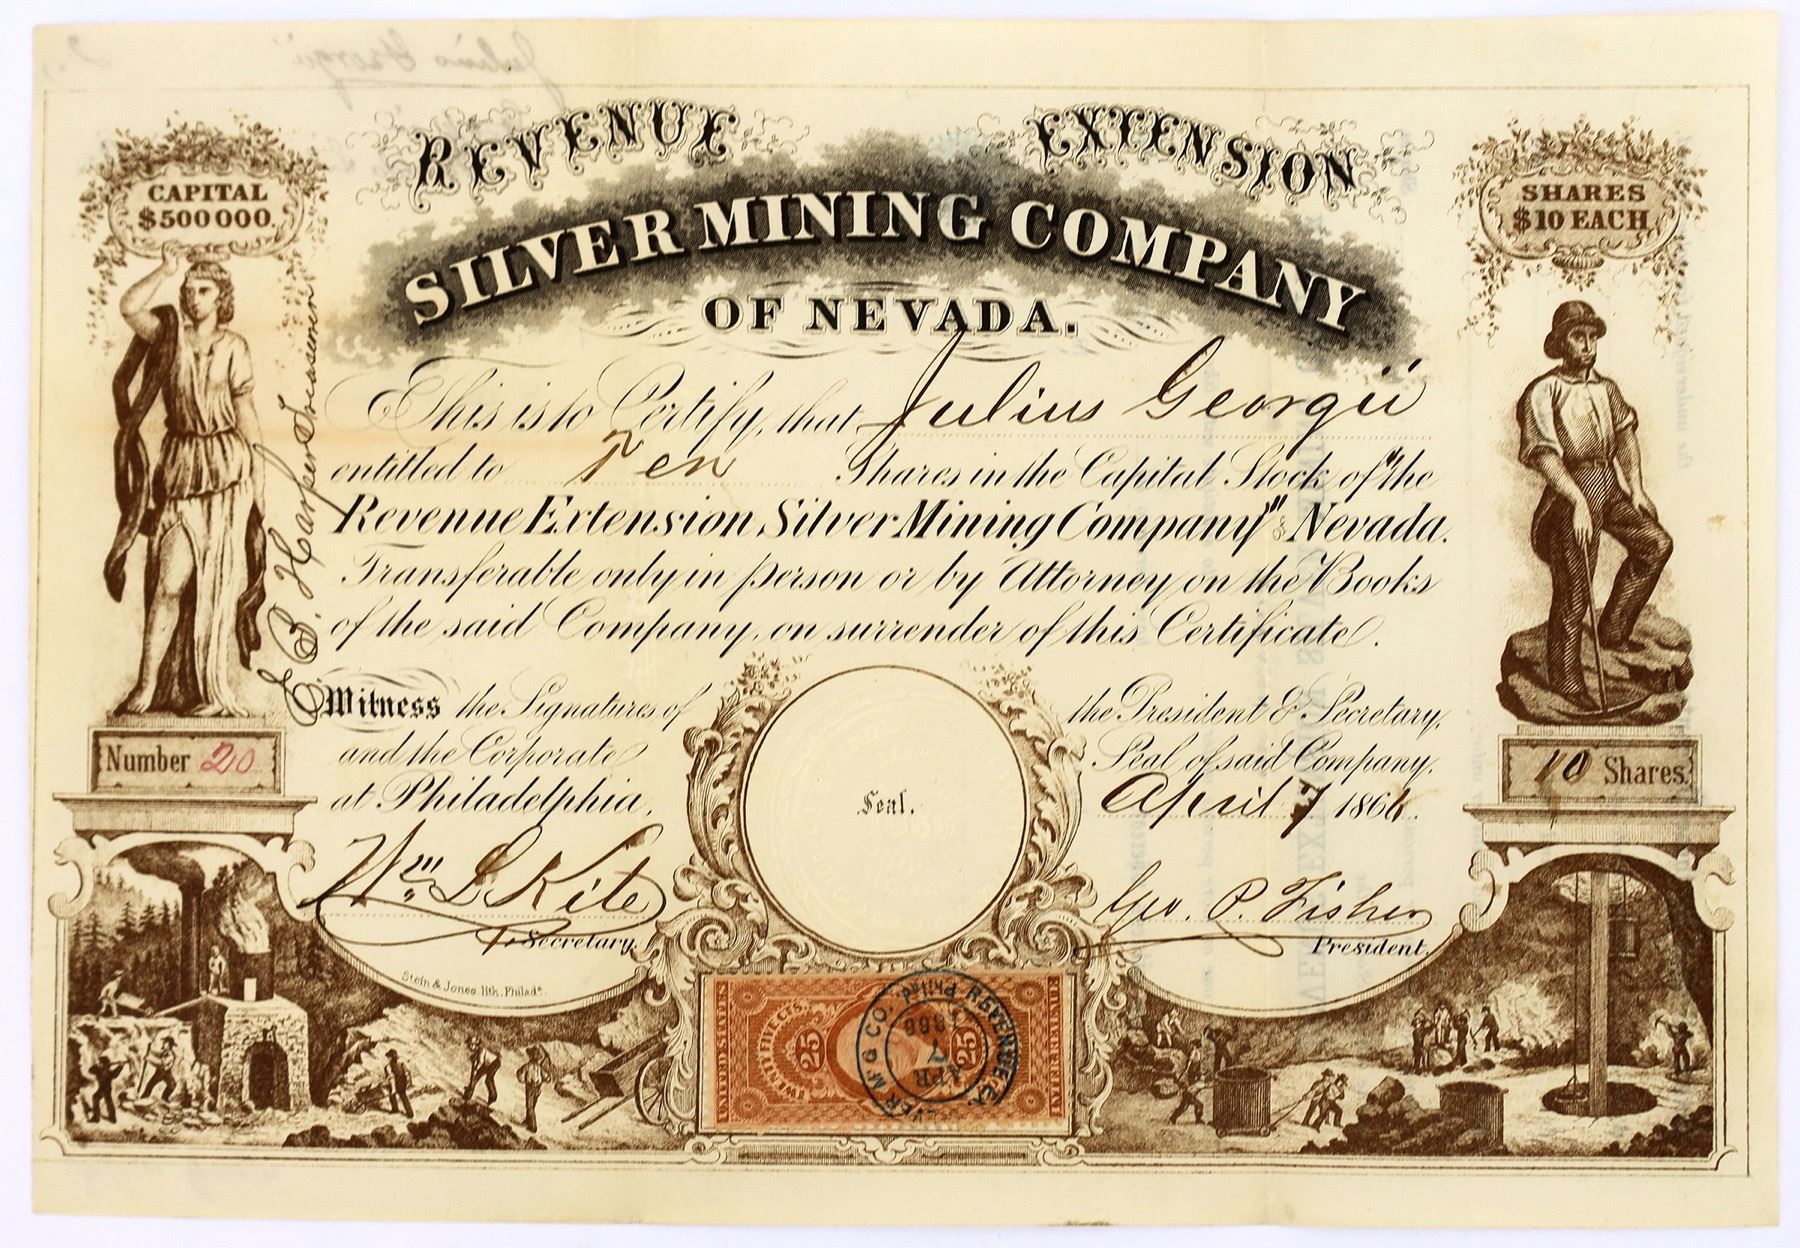 REVENUE EXTENSION
SILVER MINING COMPANY
OF NEVADA.
CAPITAL
$500 000.
SHARES
$10 EACH
This is to Certify, that Julius Georgii
entitled to Ten Shares in the Capital Stock of "the
Revenue Extension Silver Mining Company" of Nevada.
Transferable only in person or by Attorney on the Books
of the said Company, on surrender of this Certificate.
E B. Harper Treasurer
Witness the Signatures of the President & Secretary,
and the Corporate Seal of said Company,
at Philadelphia, April 7 1866.
Number 20
10 Shares.
Seal.
Wm. L Kite
Secretary.
Geo. P. Fisher
President.
Stein & Jones lith. Philada.
UNITED STATES
TWENTY FIVE CTS.
25 25
INTER. REVENUE
REVENUE EX. SILVER M'G CO. Philad
APR
7
1866
Julius Georgii